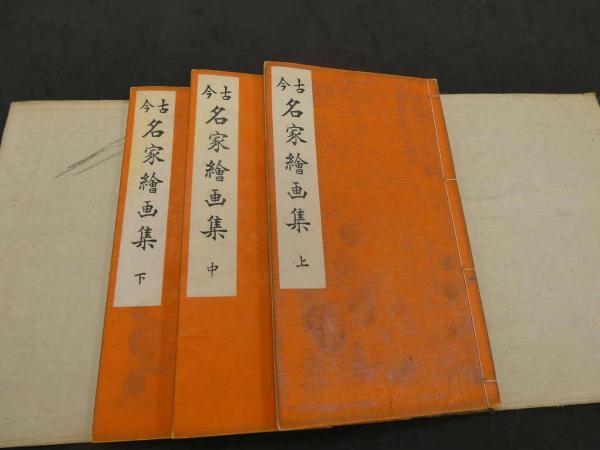 古今名家繪画集 上
古今名家繪画集 中
古今名家繪画集 下